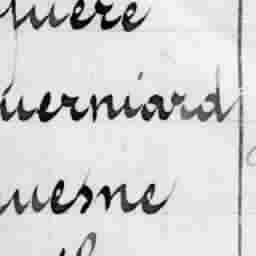 uere
uerniard
uesne